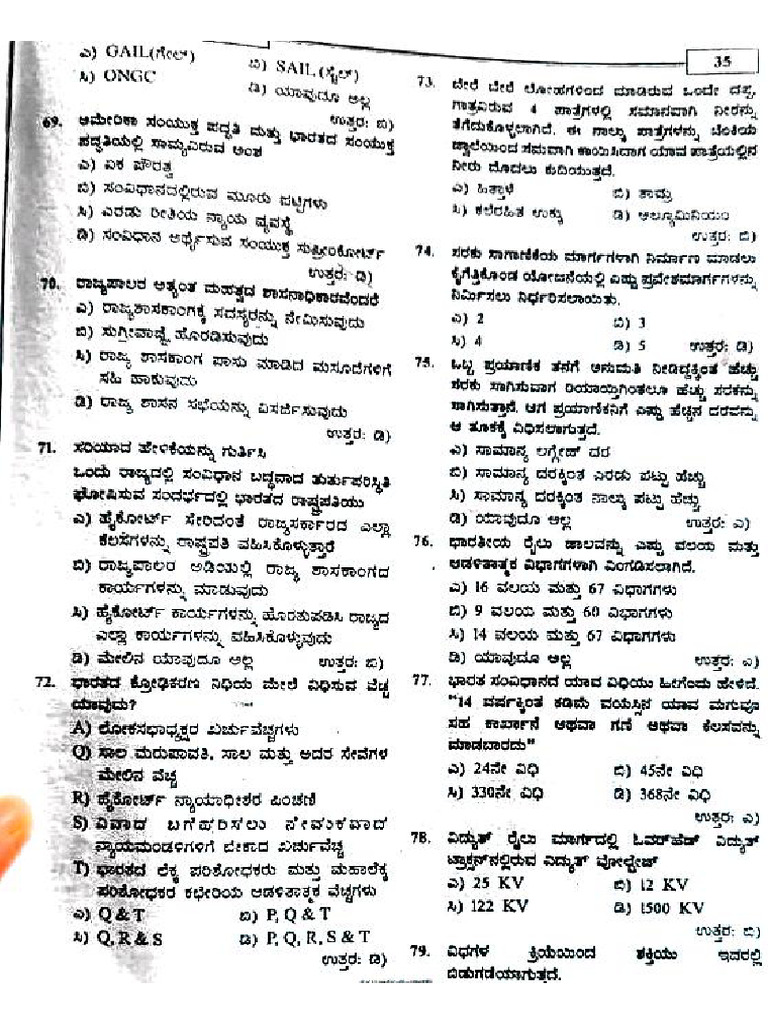 35
ಎ) GAIL(ಗೇಲ್)
ಬಿ) SAIL (ಸೈಲ್)
ಸಿ) ONGC
ಡಿ) ಯಾವುದೂ ಅಲ್ಲ
ಉತ್ತರ: ಬಿ)
69. ಅಮೇರಿಕಾ ಸಂಯುಕ್ತ ಪದ್ಧತಿ ಮತ್ತು ಭಾರತದ ಸಂಯುಕ್ತ
ಪದ್ಧತಿಯಲ್ಲಿ ಸಾಮ್ಯವಿರುವ ಅಂಶ
ಎ) ಏಕ ಪೌರತ್ವ
ಬಿ) ಸಂವಿಧಾನದಲ್ಲಿರುವ ಮೂರು ಪಟ್ಟಿಗಳು
ಸಿ) ಎರಡು ರೀತಿಯ ನ್ಯಾಯ ವ್ಯವಸ್ಥೆ
ಡಿ) ಸಂವಿಧಾನ ಅರ್ಥೈಸುವ ಸಂಯುಕ್ತ ಸುಪ್ರೀಂಕೋರ್ಟ್
ಉತ್ತರ: ಡಿ)
70. ರಾಜ್ಯಪಾಲರ ಅತ್ಯಂತ ಮಹತ್ವದ ಶಾಸನಾಧಿಕಾರವೆಂದರೆ
ಎ) ರಾಜ್ಯಶಾಸಕಾಂಗಕ್ಕೆ ಸದಸ್ಯರನ್ನು ನೇಮಿಸುವುದು
ಬಿ) ಸುಗ್ರೀವಾಜ್ಞೆ ಹೊರಡಿಸುವುದು
ಸಿ) ರಾಜ್ಯ ಶಾಸಕಾಂಗ ಪಾಸು ಮಾಡಿದ ಮಸೂದೆಗಳಿಗೆ
ಸಹಿ ಹಾಕುವುದು
ಡಿ) ರಾಜ್ಯ ಶಾಸನ ಸಭೆಯನ್ನು ವಿಸರ್ಜಿಸುವುದು
ಉತ್ತರ: ಡಿ)
71. ಸರಿಯಾದ ಹೇಳಿಕೆಯನ್ನು ಗುರ್ತಿಸಿ
ಒಂದು ರಾಜ್ಯದಲ್ಲಿ ಸಂವಿಧಾನ ಬದ್ಧವಾದ ತುರ್ತುಪರಿಸ್ಥಿತಿ
ಘೋಷಿಸುವ ಸಂದರ್ಭದಲ್ಲಿ ಭಾರತದ ರಾಷ್ಟ್ರಪತಿಯು
ಎ) ಹೈಕೋರ್ಟ್ ಸೇರಿದಂತೆ ರಾಜ್ಯಸರ್ಕಾರದ ಎಲ್ಲಾ
ಕೆಲಸಗಳನ್ನು ರಾಷ್ಟ್ರಪತಿ ವಹಿಸಿಕೊಳ್ಳುತ್ತಾರೆ
ಬಿ) ರಾಜ್ಯಪಾಲರ ಅಡಿಯಲ್ಲಿ ರಾಜ್ಯ ಶಾಸಕಾಂಗದ
ಕಾರ್ಯಗಳನ್ನು ಮಾಡುವುದು
ಸಿ) ಹೈಕೋರ್ಟ್ ಕಾರ್ಯಗಳನ್ನು ಹೊರತುಪಡಿಸಿ ರಾಜ್ಯದ
ಎಲ್ಲಾ ಕಾರ್ಯಗಳನ್ನು ವಹಿಸಿಕೊಳ್ಳುವುದು
ಡಿ) ಮೇಲಿನ ಯಾವುದೂ ಅಲ್ಲ ಉತ್ತರ: ಬಿ)
72. ಭಾರತದ ಕ್ರೋಢಿಕರಣ ನಿಧಿಯ ಮೇಲೆ ವಿಧಿಸುವ ವೆಚ್ಚ
ಯಾವುದು?
A) ಲೋಕಸಭಾಧ್ಯಕ್ಷರ ಖರ್ಚುವೆಚ್ಚಗಳು
Q) ಸಾಲ ಮರುಪಾವತಿ, ಸಾಲ ಮತ್ತು ಅದರ ಸೇವೆಗಳ
ಮೇಲಿನ ವೆಚ್ಚ
R) ಹೈಕೋರ್ಟ್ ನ್ಯಾಯಾಧೀಶರ ಪಿಂಚಣಿ
S) ವಿವಾದ ಬಗೆಹರಿಸಲು ನೇಮಕವಾದ
ನ್ಯಾಯಮಂಡಳಿಗಳಿಗೆ ಬೇಕಾದ ಖರ್ಚುವೆಚ್ಚ
T) ಭಾರತದ ಲೆಕ್ಕ ಪರಿಶೋಧಕರು ಮತ್ತು ಮಹಾಲೆಕ್ಕ
ಪರಿಶೋಧಕರ ಕಛೇರಿಯ ಆಡಳಿತಾತ್ಮಕ ವೆಚ್ಚಗಳು
ಎ) Q & T ಬಿ) P, Q & T
ಸಿ) Q, R & S ಡಿ) P, Q, R, S & T
ಉತ್ತರ: ಡಿ)
73. ಬೇರೆ ಬೇರೆ ಲೋಹಗಳಿಂದ ಮಾಡಿರುವ ಒಂದೇ ದಪ್ಪ,
ಗಾತ್ರವಿರುವ 4 ಪಾತ್ರೆಗಳಲ್ಲಿ ಸಮಾನವಾಗಿ ನೀರನ್ನು
ತೆಗೆದುಕೊಳ್ಳಲಾಗಿದೆ. ಈ ನಾಲ್ಕು ಪಾತ್ರೆಗಳನ್ನು ಬೆಂಕಿಯ
ಜ್ವಾಲೆಯಿಂದ ಸಮವಾಗಿ ಕಾಯಿಸಿದಾಗ ಯಾವ ಪಾತ್ರೆಯಲ್ಲಿನ
ನೀರು ಮೊದಲು ಕುದಿಯುತ್ತದೆ.
ಎ) ಹಿತ್ತಾಳೆ ಬಿ) ತಾಮ್ರ
ಸಿ) ಕಲೆರಹಿತ ಉಕ್ಕು ಡಿ) ಅಲ್ಯೂಮಿನಿಯಂ
ಉತ್ತರ: ಬಿ)
74. ಸರಕು ಸಾಗಾಣಿಕೆಯ ಮಾರ್ಗಗಳಾಗಿ ನಿರ್ಮಾಣ ಮಾಡಲು
ಕೈಗೆತ್ತಿಕೊಂಡ ಯೋಜನೆಯಲ್ಲಿ ಎಷ್ಟು ಪ್ರವೇಶಮಾರ್ಗಗಳನ್ನು
ನಿರ್ಮಿಸಲು ನಿರ್ಧರಿಸಲಾಯಿತು.
ಎ) 2 ಬಿ) 3
ಸಿ) 4 ಡಿ) 5 ಉತ್ತರ: ಡಿ)
75. ಒಬ್ಬ ಪ್ರಯಾಣಿಕ ತನಗೆ ಅನುಮತಿ ನೀಡಿದ್ದಕ್ಕಿಂತ ಹೆಚ್ಚು
ಸರಕು ಸಾಗಿಸುವಾಗ ರಿಯಾಯ್ತಿಗಿಂತಲೂ ಹೆಚ್ಚು ಸರಕನ್ನು
ಸಾಗಿಸುತ್ತಾನೆ. ಆಗ ಪ್ರಯಾಣಿಕನಿಗೆ ಎಷ್ಟು ಹೆಚ್ಚಿನ ದರವನ್ನು
ಆ ತೂಕಕ್ಕೆ ವಿಧಿಸಲಾಗುತ್ತದೆ.
ಎ) ಸಾಮಾನ್ಯ ಲಗ್ಗೇಜ್ ದರ
ಬಿ) ಸಾಮಾನ್ಯ ದರಕ್ಕಿಂತ ಎರಡು ಪಟ್ಟು ಹೆಚ್ಚು
ಸಿ) ಸಾಮಾನ್ಯ ದರಕ್ಕಿಂತ ನಾಲ್ಕು ಪಟ್ಟು ಹೆಚ್ಚು
ಡಿ) ಯಾವುದೂ ಅಲ್ಲ ಉತ್ತರ: ಎ)
76. ಭಾರತೀಯ ರೈಲು ಜಾಲವನ್ನು ಎಷ್ಟು ವಲಯ ಮತ್ತು
ಆಡಳಿತಾತ್ಮಕ ವಿಭಾಗಗಳಾಗಿ ವಿಂಗಡಿಸಲಾಗಿದೆ.
ಎ) 16 ವಲಯ ಮತ್ತು 67 ವಿಭಾಗಗಳು
ಬಿ) 9 ವಲಯ ಮತ್ತು 60 ವಿಭಾಗಗಳು
ಸಿ) 14 ವಲಯ ಮತ್ತು 67 ವಿಭಾಗಗಳು
ಡಿ) ಯಾವುದೂ ಅಲ್ಲ ಉತ್ತರ: ಎ)
77. ಭಾರತ ಸಂವಿಧಾನದ ಯಾವ ವಿಧಿಯು ಹೀಗೆಂದು ಹೇಳಿದೆ.
"14 ವರ್ಷಕ್ಕಿಂತ ಕಡಿಮೆ ವಯಸ್ಸಿನ ಯಾವ ಮಗುವೂ
ಸಹ ಕಾರ್ಖಾನೆ ಅಥವಾ ಗಣಿ ಅಥವಾ ಕೆಲಸವನ್ನು
ಮಾಡಬಾರದು"
ಎ) 24ನೇ ವಿಧಿ ಬಿ) 45ನೇ ವಿಧಿ
ಸಿ) 330ನೇ ವಿಧಿ ಡಿ) 368ನೇ ವಿಧಿ
ಉತ್ತರ: ಎ)
78. ವಿದ್ಯುತ್ ರೈಲು ಮಾರ್ಗದಲ್ಲಿ ಓವರ್‌ಹೆಡ್ ವಿದ್ಯುತ್
ಟ್ರಾಕ್ಷನ್‌ನಲ್ಲಿರುವ ವಿದ್ಯುತ್ ವೋಲ್ಟೇಜ್
ಎ) 25 KV ಬಿ) 12 KV
ಸಿ) 122 KV ಡಿ) 1500 KV
ಉತ್ತರ: ಬಿ)
79. ವಿಧಗಳ ಕ್ರಿಯೆಯಿಂದ ಶಕ್ತಿಯು ಇದರಲ್ಲಿ
ಬಿಡುಗಡೆಯಾಗುತ್ತದೆ.